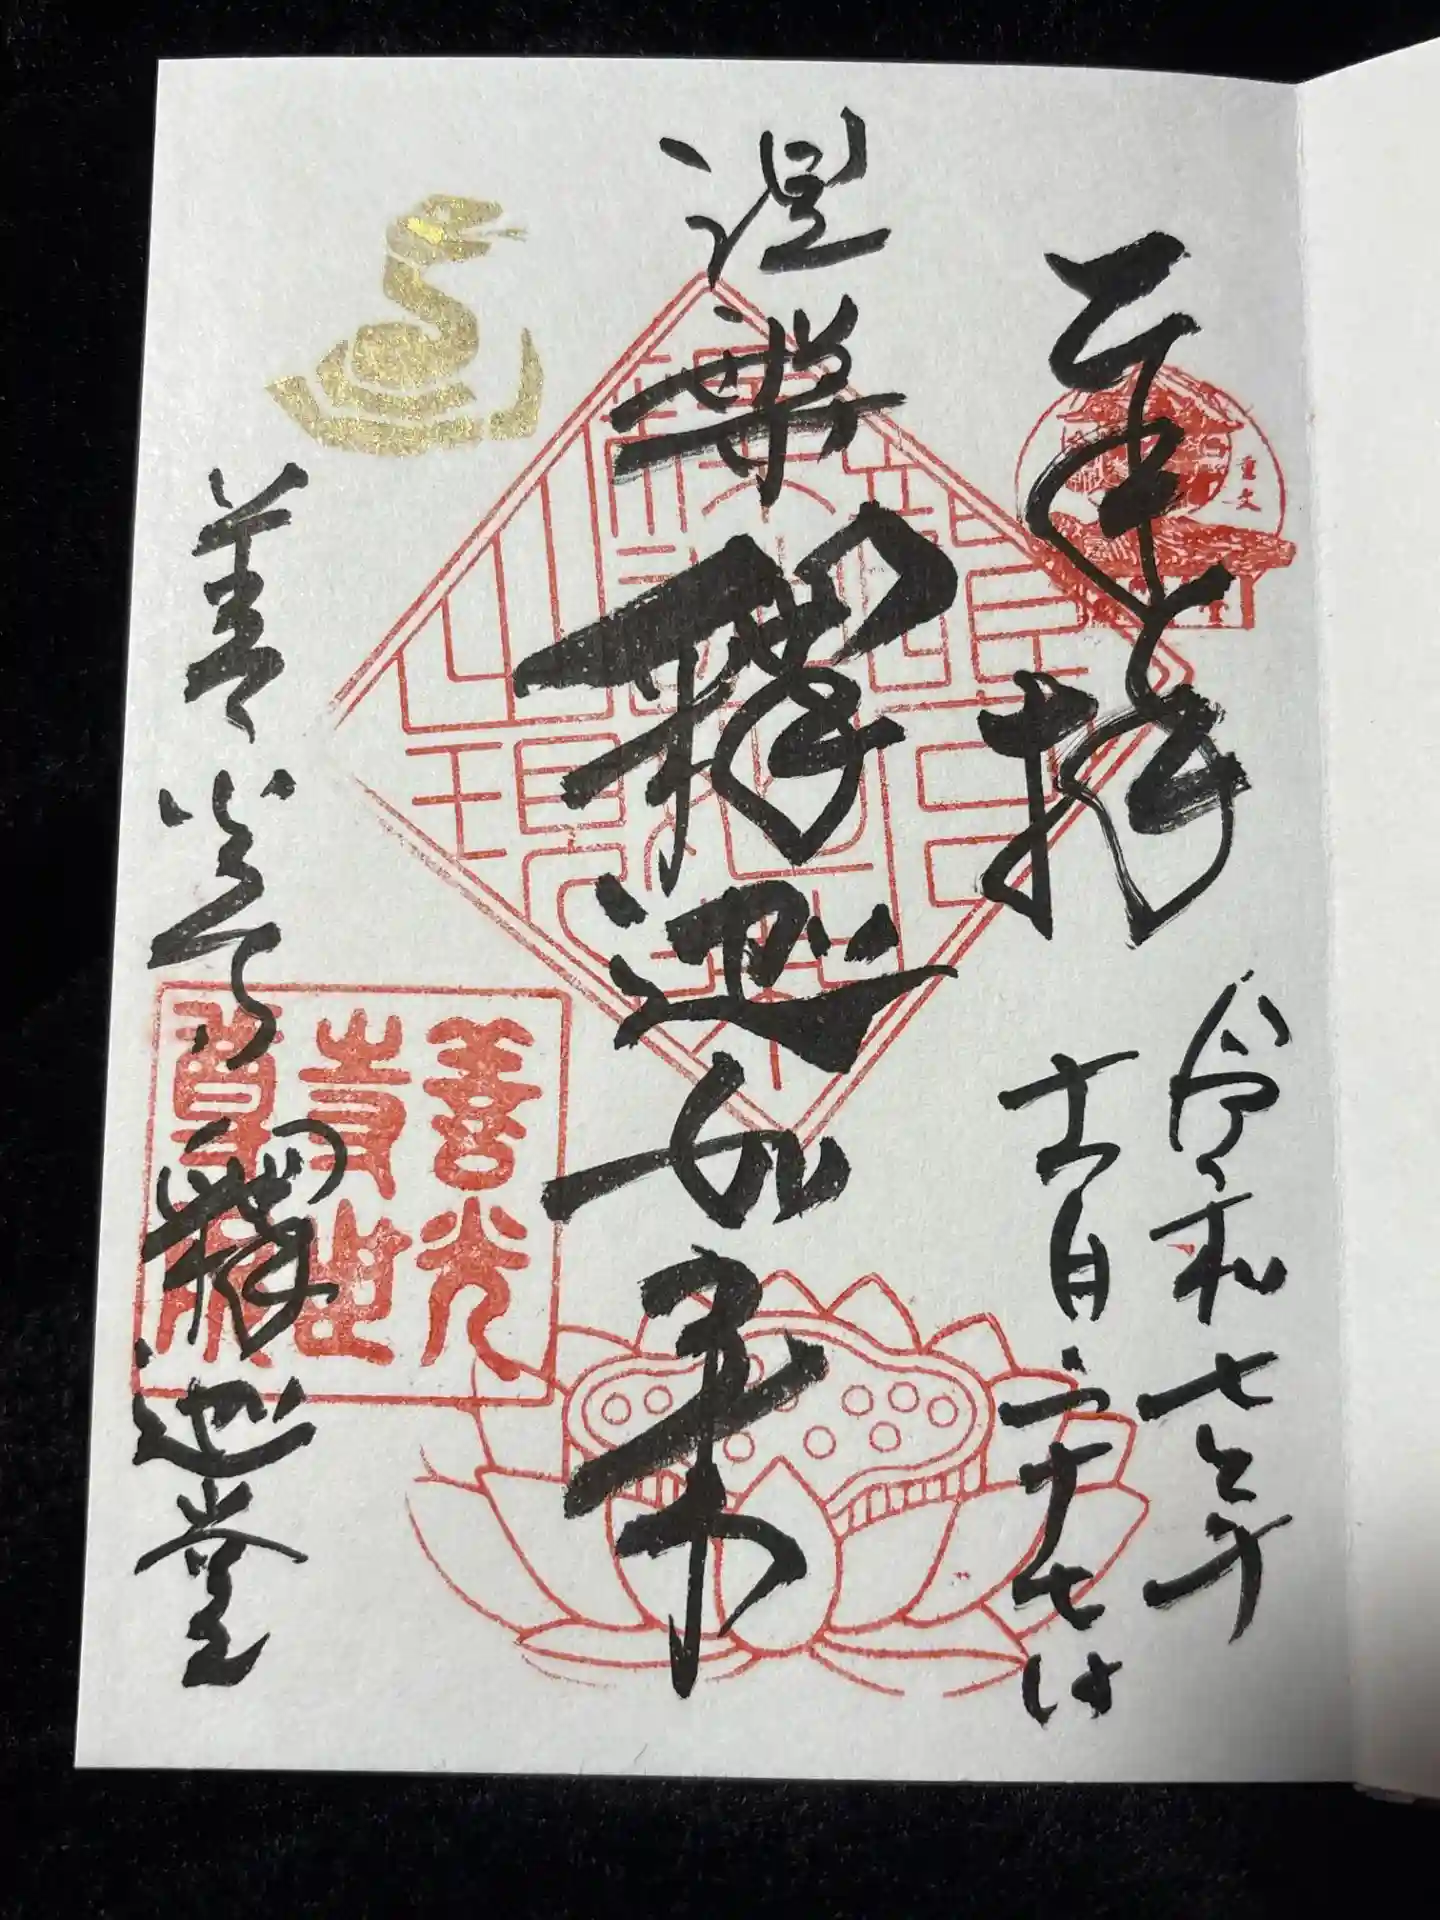 奉拝
重文
令和七年
十一月二十七日
涅槃釋迦如来
善光寺
釋迦堂
善光
寺世
尊院